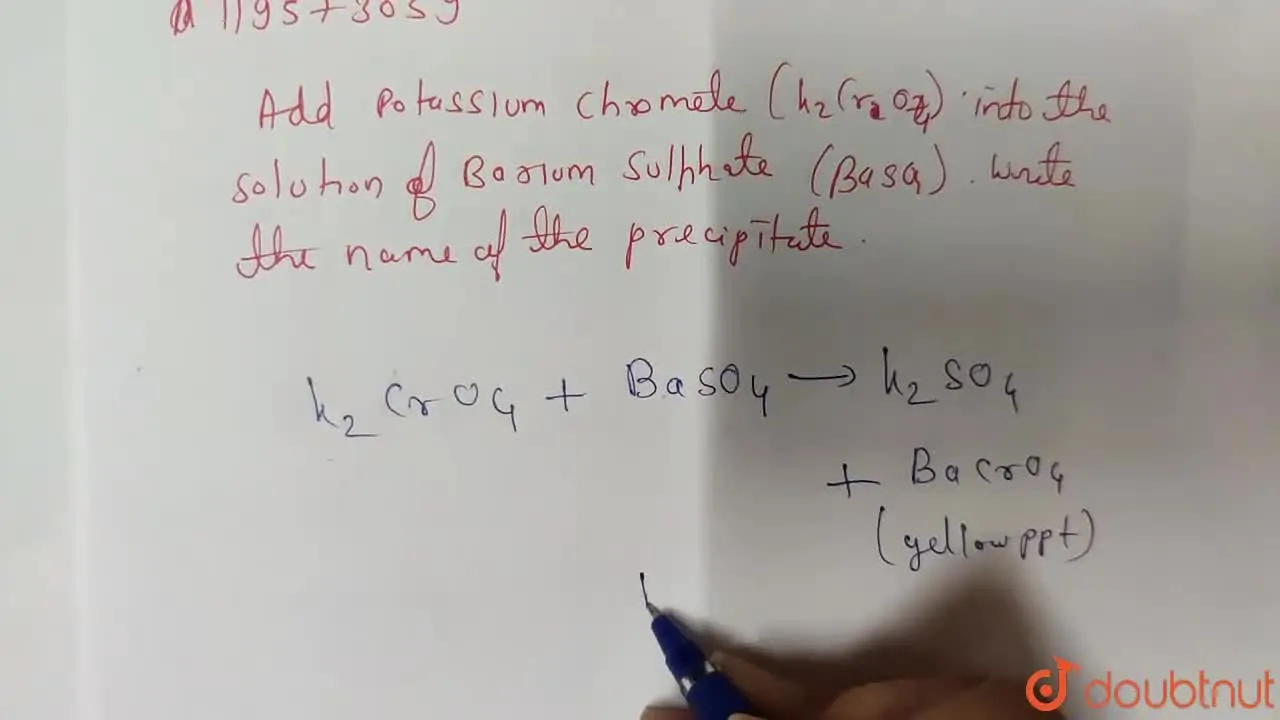 1195+3059
Add Potassium Chromete (K2Cr2O4) into the
solution of Barium Sulphate (BaSO4). write
the name of the precipitate.
K2CrO4 + BaSO4 → K2SO4
+ BaCrO4
(yellow ppt)
doubtnut